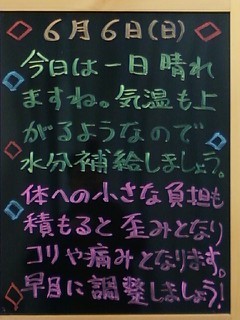 6月6日(日)
今日は一日晴れ
ますね。気温も上
がるようなので
水分補給しましょう。
体への小さな負担も
積もると歪みとなり
コリや痛みとなります。
早目に調整しましょう!